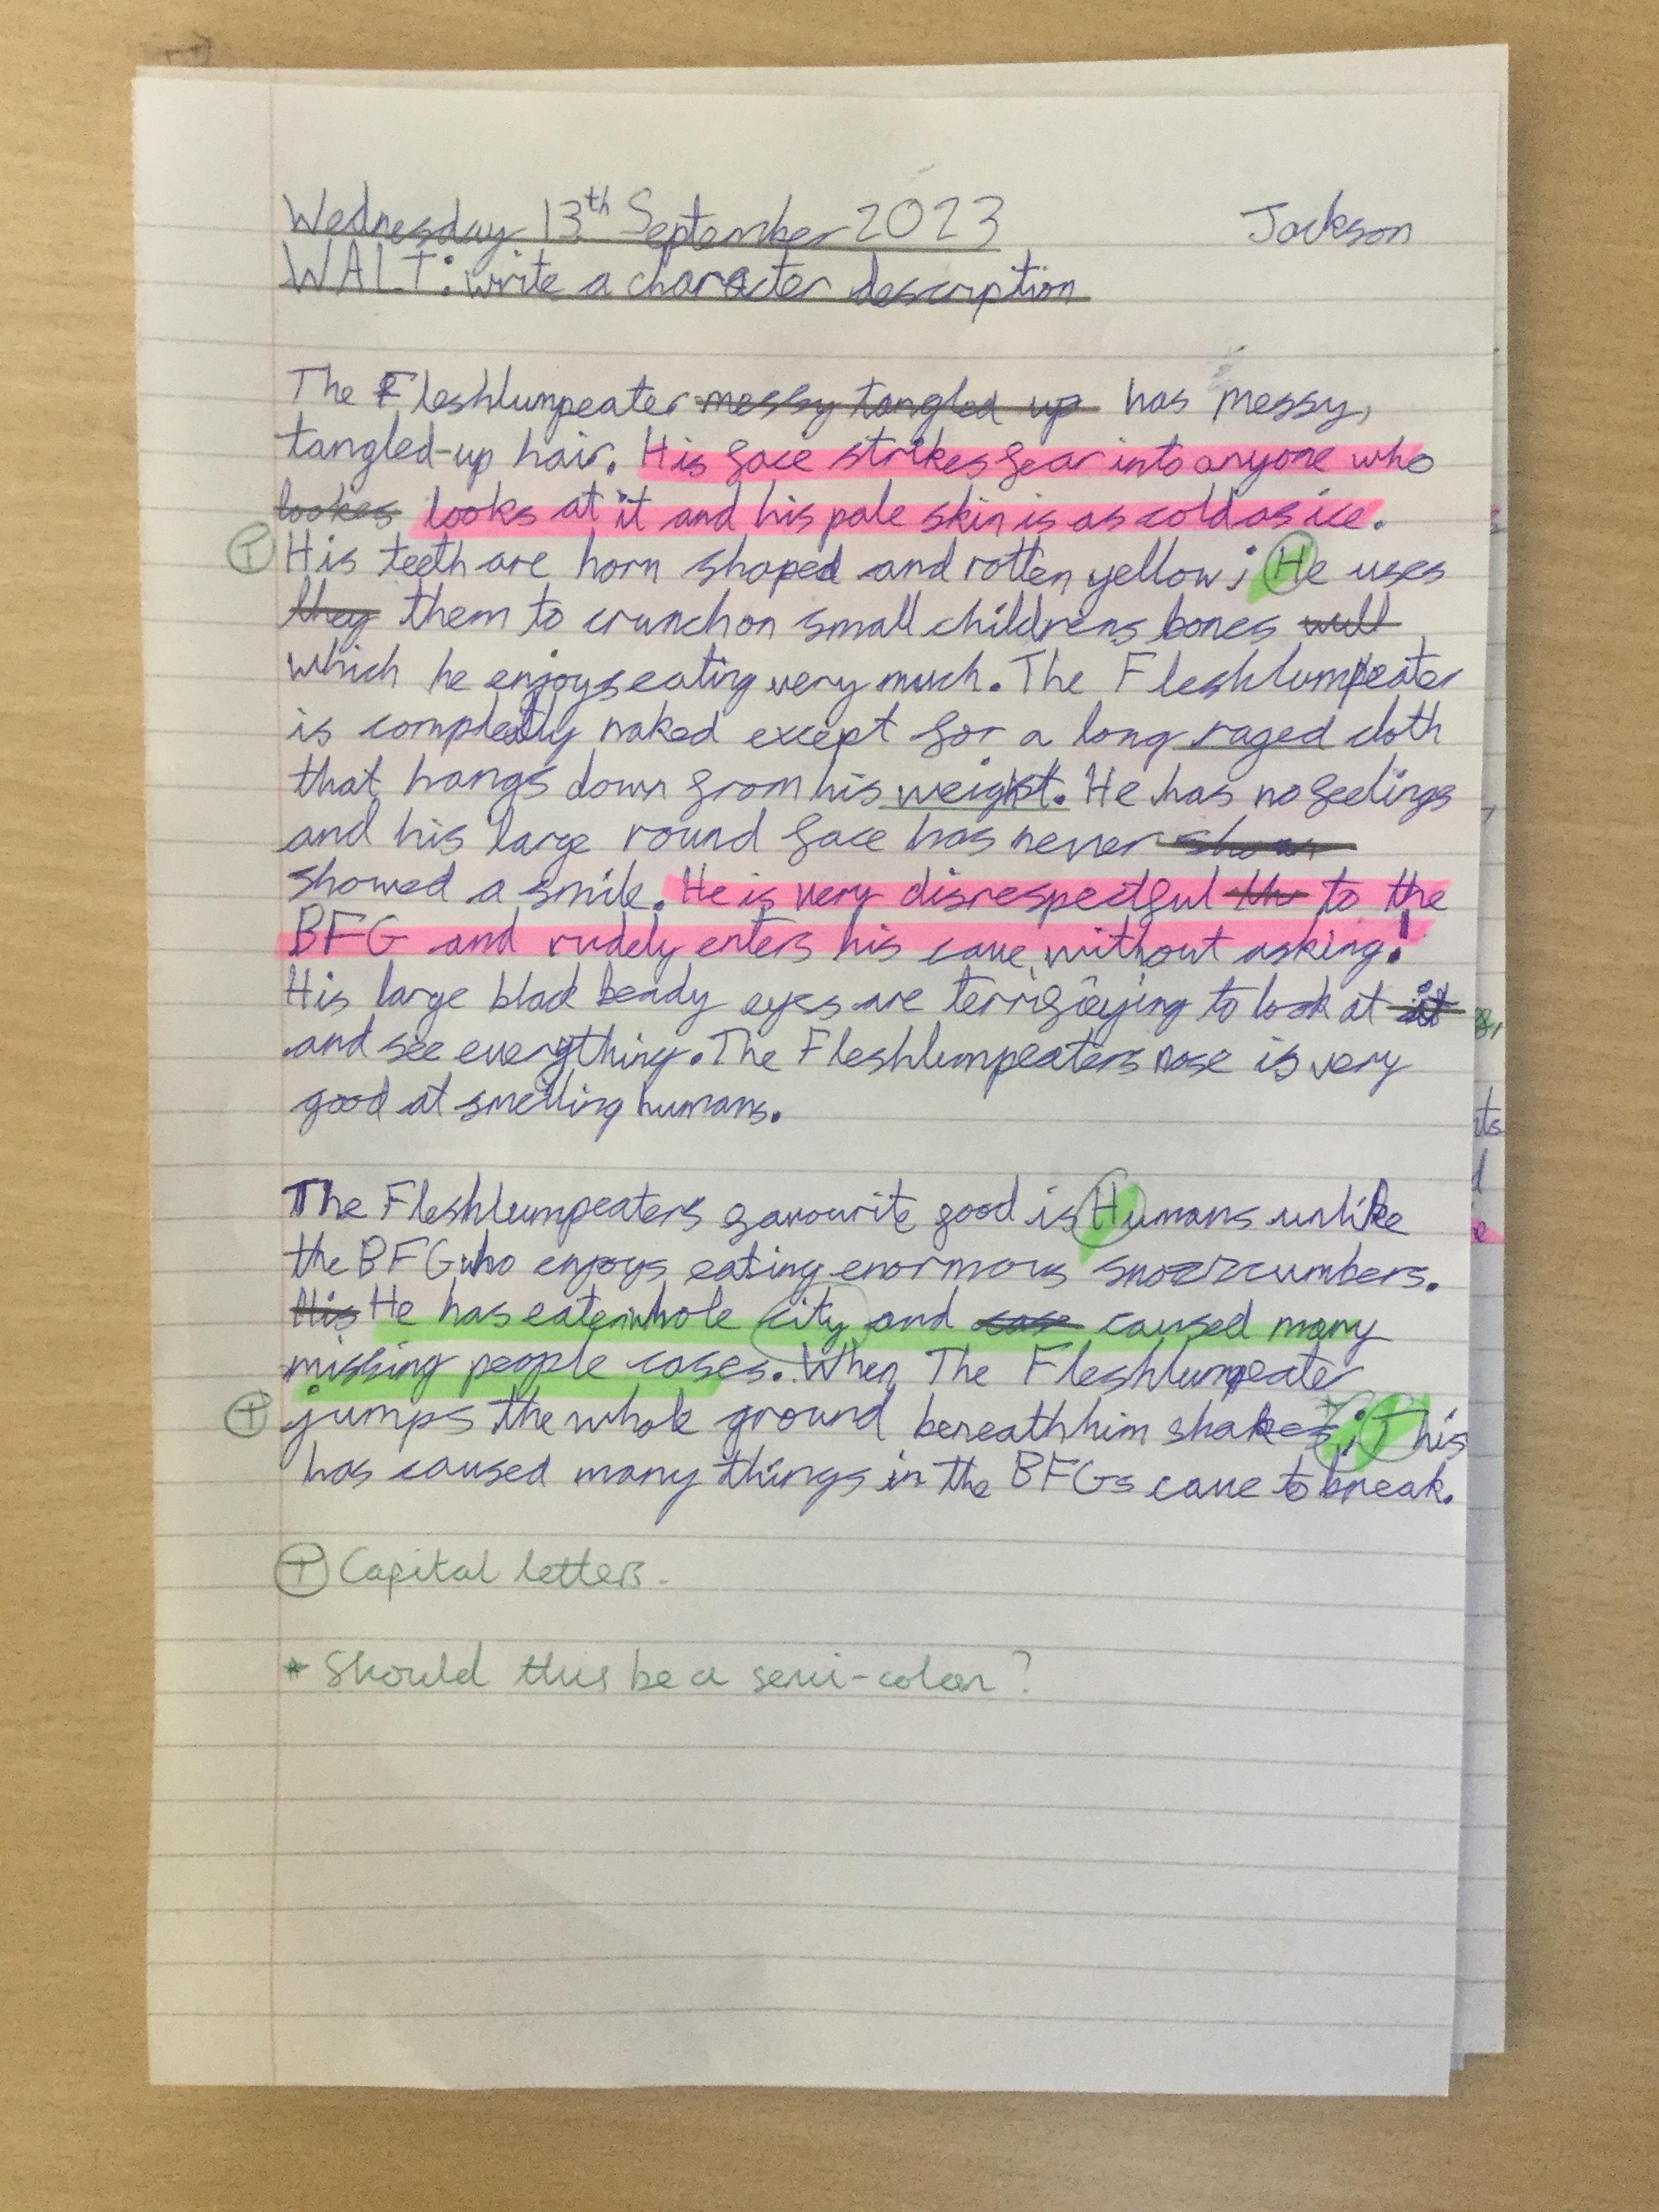 Wednesday 13th September 2023 Jackson
WALT: write a character description
The Fleshlumpeater messy tangled up has messy,
tangled-up hair. His face strikes fear into anyone who
lookes looks at it and his pale skin is as cold as ice.
T His teeth are horn shaped and rotten yellow; He uses
they them to crunch on small childrens bones will
which he enjoys eating very much. The Fleshlumpeater
is completly naked except for a long raged cloth
that hangs down from his weight. He has no feelings
and his large round face has never
showed a smile. He is very disrespectful to the
BFG and rudely enters his cave without asking!
His large black beady eyes are terrifying to look at it
and see everything. The Fleshlumpeaters nose is very
good at smelling humans.
The Fleshlumpeaters favourite food is Humans unlike
the BFG who enjoys eating enormous snozzcumbers.
His He has eaten whole city and case caused many
missing people cases. When The Fleshlumpeater
T jumps the whole ground beneath him shakes; This
has caused many things in the BFGs cave to break.
T Capital letters.
* Should this be a semi-colon?